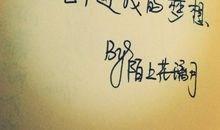 的梦想
By: 陌上花满月